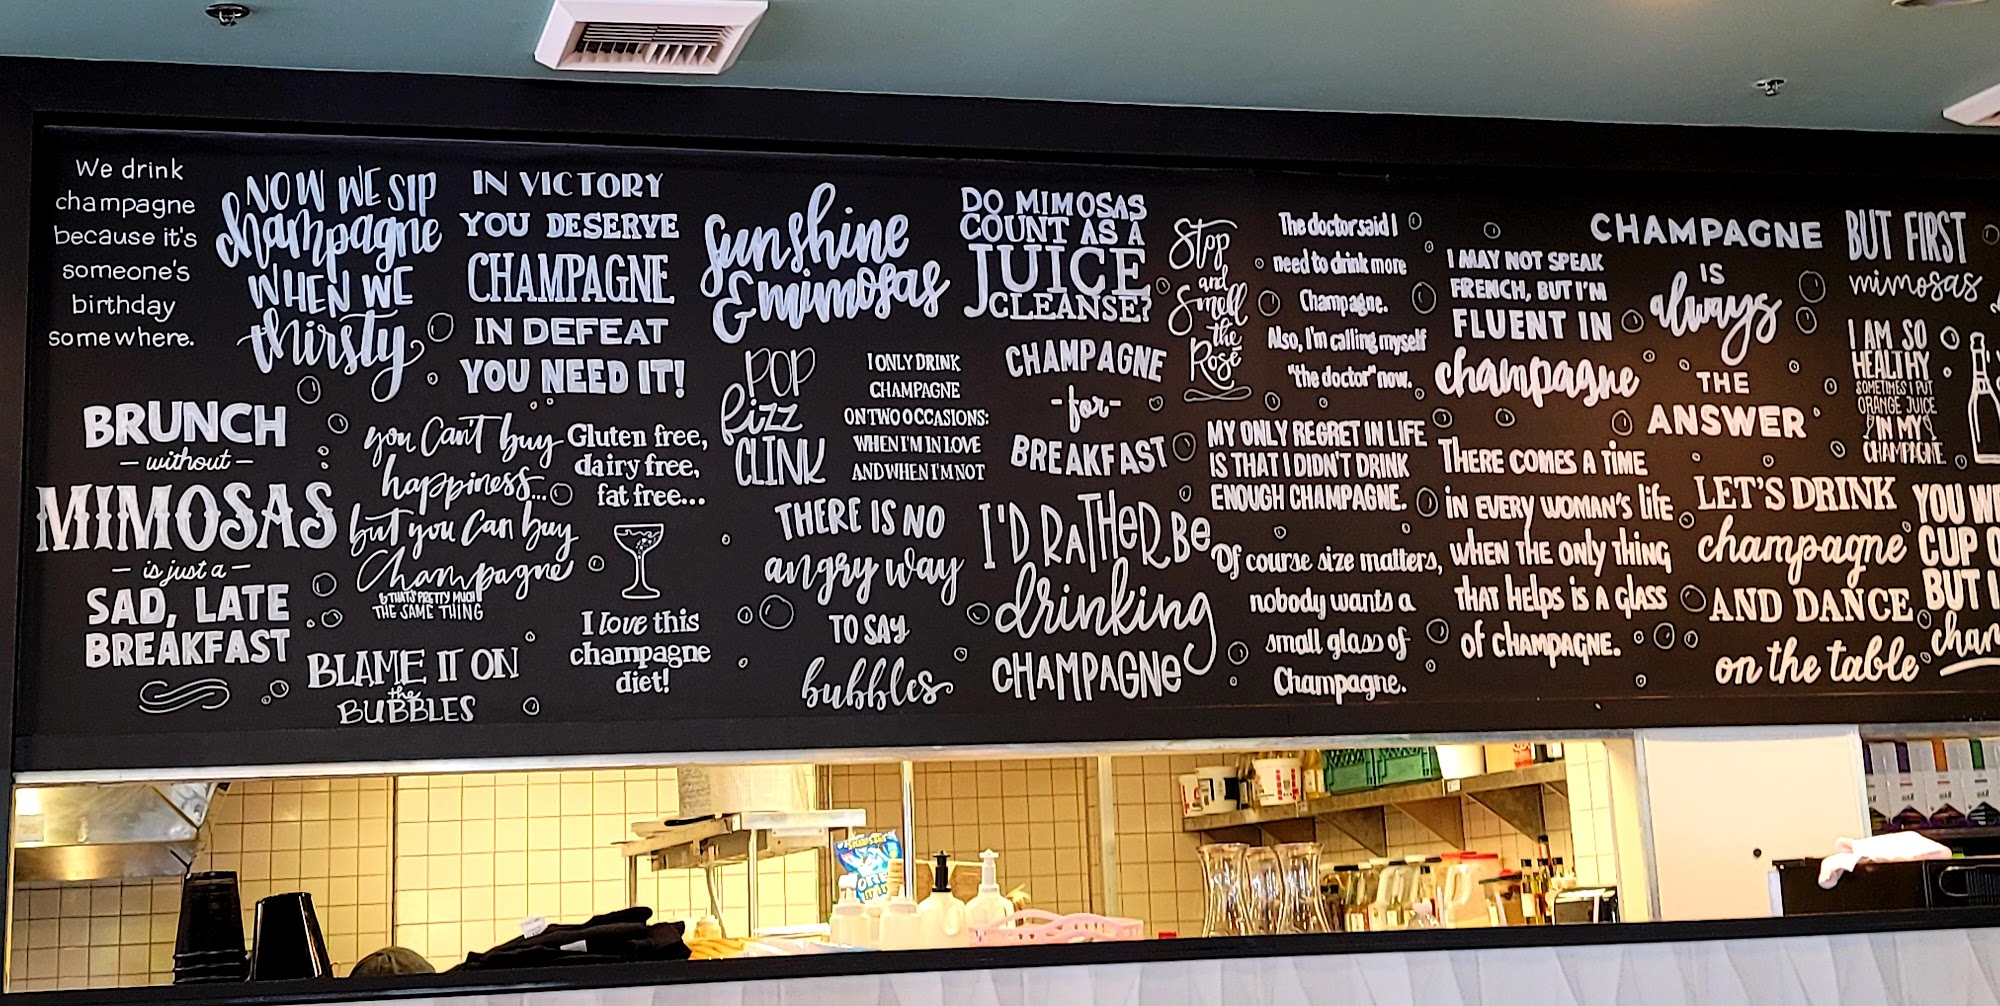 We drink
champagne
because it's
someone's
birthday
somewhere.
NOW WE SIP
champagne
WHEN WE
thirsty
IN VICTORY
YOU DESERVE
CHAMPAGNE
IN DEFEAT
YOU NEED IT!
Sunshine
& mimosas
DO MIMOSAS
COUNT AS A
JUICE
CLEANSE?
Stop
and
Smell
the
Rosé
The doctor said I
need to drink more
Champagne.
Also, I'm calling myself
"the doctor" now.
I MAY NOT SPEAK
FRENCH, BUT I'M
FLUENT IN
champagne
CHAMPAGNE
IS
always
THE
ANSWER
BUT FIRST
mimosas
BRUNCH
- without -
MIMOSAS
- is just a -
SAD, LATE
BREAKFAST
you Can't buy
happiness...
but you Can buy
Champagne
& THAT'S PRETTY MUCH
THE SAME THING
BLAME IT ON
the
BUBBLES
Gluten free,
dairy free,
fat free...
I love this
champagne
diet!
POP
fizz
CLINK
I ONLY DRINK
CHAMPAGNE
ON TWO OCCASIONS:
WHEN I'M IN LOVE
AND WHEN I'M NOT
THERE IS NO
angry way
TO SAY
bubbles
CHAMPAGNE
-for-
BREAKFAST
I'D RATHER BE
drinking
CHAMPAGNE
MY ONLY REGRET IN LIFE
IS THAT I DIDN'T DRINK
ENOUGH CHAMPAGNE.
Of course size matters,
nobody wants a
small glass of
Champagne.
THERE COMES A TIME
IN EVERY WOMAN'S LIFE
WHEN THE ONLY THING
THAT HELPS IS A GLASS
OF CHAMPAGNE.
LET'S DRINK
champagne
AND DANCE
on the table
I AM SO
HEALTHY
SOMETIMES I PUT
ORANGE JUICE
IN MY
CHAMPAGNE.
YOU WE
CUP O
BUT I
cham